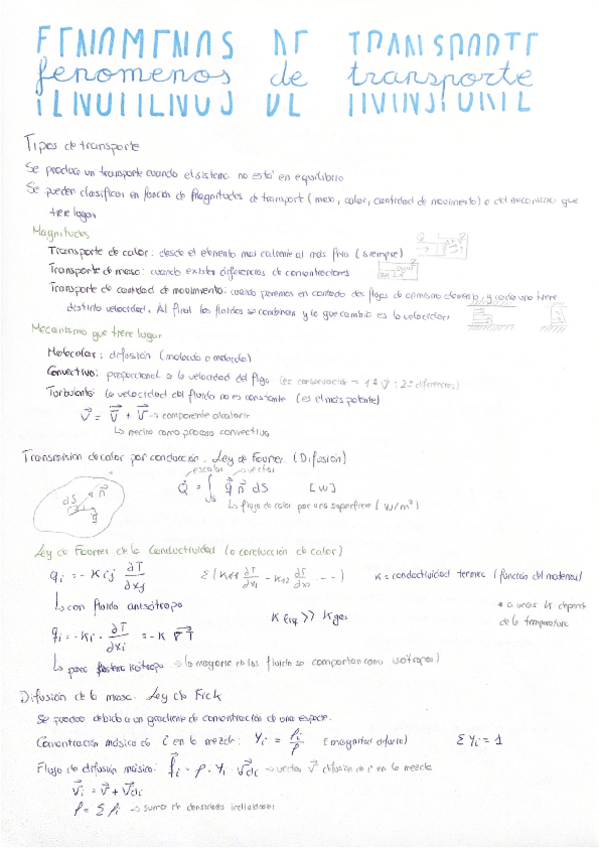 fenomenos de transporte
Tipos de transporte
Se produce un transporte cuando el sistema no está en equilibrio
Se pueden clasificar en función de Magnitudes de transport (masa, calor, cantidad de movimiento) o del mecanismo que
tiene lugar
Magnitudes
Transporte de calor: desde el elemento mas caliente al más frio (siempre)
Transporte de masa: cuando existen diferencias de concentraciones
Transporte de cantidad de movimiento: cuando ponemos en contacto dos flujos de un mismo elemento, y cada uno tiene
distinta velocidad. Al final los fluidos se combinan y lo que cambia es la velocidad
Mecanismo que tiene lugar
Molecular: difusión (molecula a molecula)
Convectivo: proporcional a la velocidad del flujo
Turbulento: la velocidad del fluido no es constante (es el más potente)
V⃗ = V⃗ + V⃗ → componente aleatoria
↳ mecanismo como proceso convectivo
Transmisión de calor por conducción. Ley de Fourier (Difusión)
escalar vector
Q̇ = ∫s q⃗ n⃗ dS [W]
↳ flujo de calor por una superficie (W/m²)
dS n⃗ q⃗
Ley de Fourier de la Conductividad (o conducción de calor)
qi = - Kij ∂T/∂xj K = conductividad termica (función del material)
↳ con fluido anisótropo
K liq >> K gas
qi = - Ki · ∂T/∂xi = - K ∇T
↳ para sistema isótropo → la mayoria de los fluidos se comportan como isótropos)
Difusión de la masa. Ley de Fick
Se produce debido a un gradiente de concentración de una especie.
Concentración másica de i en la mezcla: Yi = ρi/ρ Σ Yi = 1
Flujo de difusión másico: f⃗i = ρ · Yi · V⃗di → vector V⃗ difusión de i en la mezcla
V⃗i = V⃗ + V⃗di
ρ = Σ ρi → suma de densidades individuales